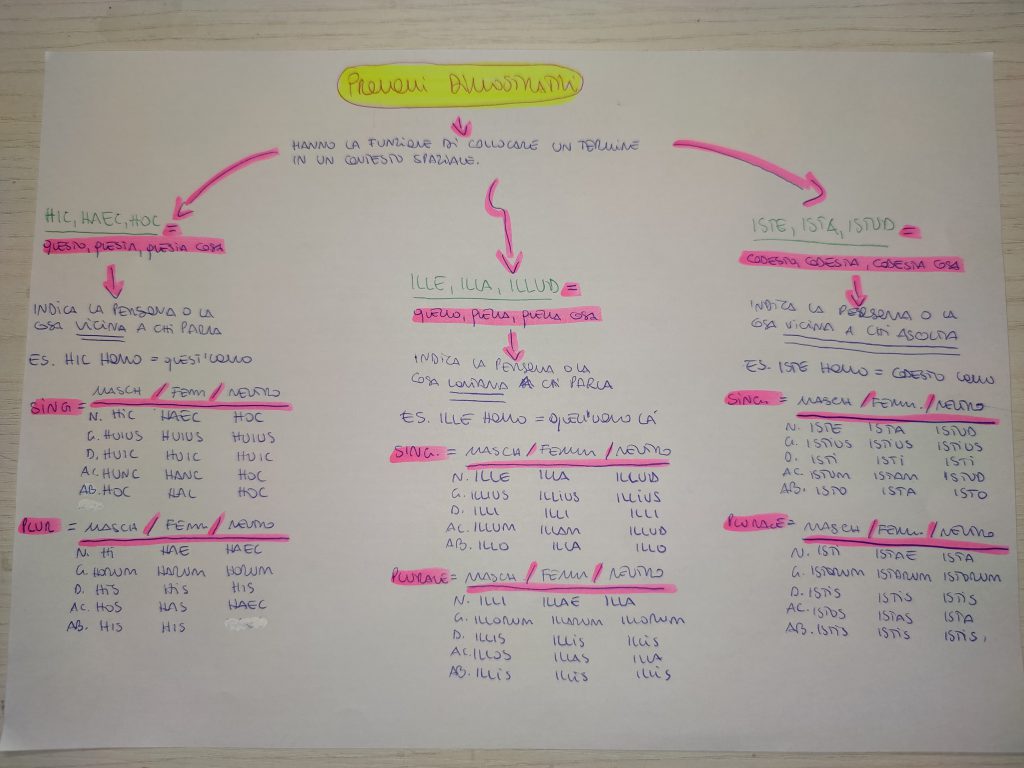 PRONOMI DIMOSTRATIVI
HANNO LA FUNZIONE DI COLLOCARE UN TERMINE
IN UN CONTESTO SPAZIALE.
HIC, HAEC, HOC =
QUESTO, QUESTA, QUESTA COSA
INDICA LA PERSONA O LA
COSA VICINA A CHI PARLA
ES. HIC HOMO = QUEST'UOMO
SING = MASCH / FEMM / NEUTRO
N. HIC HAEC HOC
G. HUIUS HUIUS HUIUS
D. HUIC HUIC HUIC
AC. HUNC HANC HOC
AB. HOC HAC HOC
PLUR = MASCH / FEMM / NEUTRO
N. HI HAE HAEC
G. HORUM HARUM HORUM
D. HIS HIS HIS
AC. HOS HAS HAEC
AB. HIS HIS
ILLE, ILLA, ILLUD =
QUELLO, QUELLA, QUELLA COSA
INDICA LA PERSONA O LA
COSA LONTANA A CHI PARLA
ES. ILLE HOMO = QUELL'UOMO LÀ
SING. = MASCH / FEMM / NEUTRO
N. ILLE ILLA ILLUD
G. ILLIUS ILLIUS ILLIUS
D. ILLI ILLI ILLI
AC. ILLUM ILLAM ILLUD
AB. ILLO ILLA ILLO
PLURALE = MASCH / FEMM / NEUTRO
N. ILLI ILLAE ILLA
G. ILLORUM ILLARUM ILLORUM
D. ILLIS ILLIS ILLIS
AC. ILLOS ILLAS ILLA
AB. ILLIS ILLIS ILLIS
ISTE, ISTA, ISTUD =
CODESTO, CODESTA, CODESTA COSA
INDICA LA PERSONA O LA
COSA VICINA A CHI ASCOLTA
ES. ISTE HOMO = CODESTO UOMO
SING. = MASCH / FEMM. / NEUTRO
N. ISTE ISTA ISTUD
G. ISTIUS ISTIUS ISTIUS
D. ISTI ISTI ISTI
AC. ISTUM ISTAM ISTUD
AB. ISTO ISTA ISTO
PLURALE = MASCH / FEMM / NEUTRO
N. ISTI ISTAE ISTA
G. ISTORUM ISTORUM ISTORUM
D. ISTIS ISTIS ISTIS
AC. ISTOS ISTAS ISTA
AB. ISTIS ISTIS ISTIS.